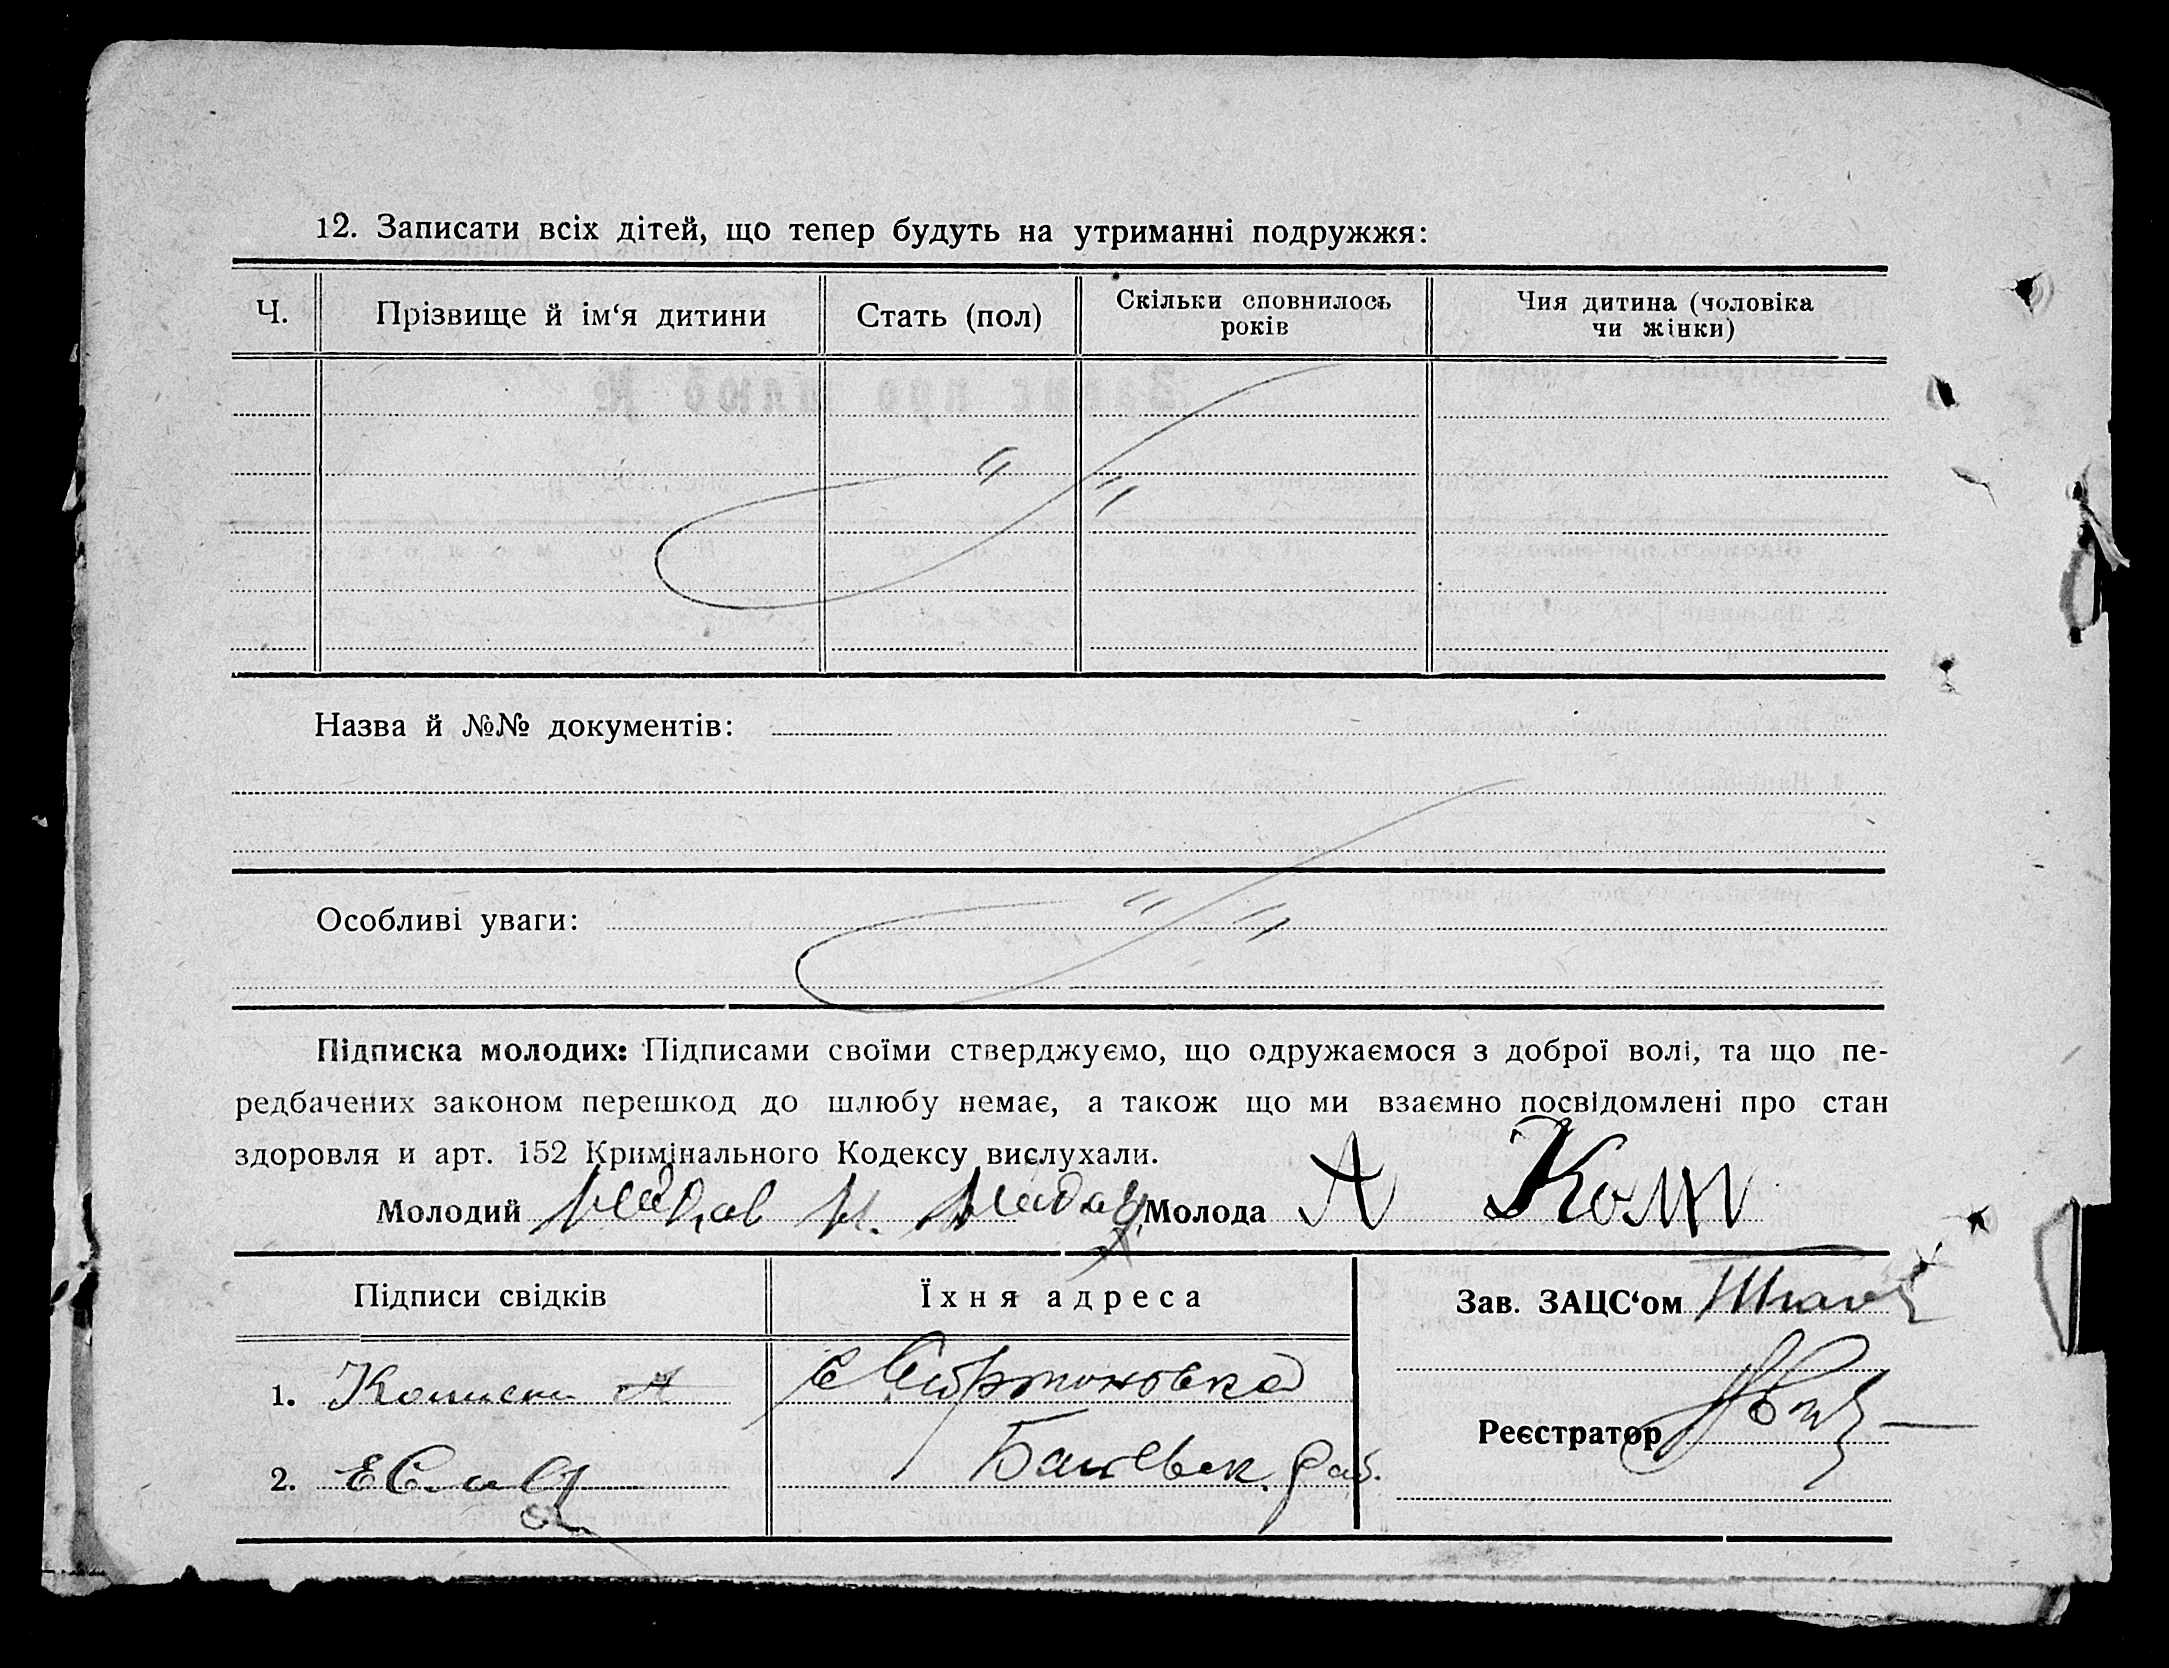 12. Записати всіх дітей, що тепер будуть на утриманні подружжя:
Ч. Прізвище й ім‘я дитини Стать (пол) Скільки сповнилось років Чия дитина (чоловіка чи жінки)
Назва й №№ документів:
Особливі уваги:
Підписка молодих: Підписами своїми стверджуємо, що одружаємося з доброї волі, та що пе-
редбачених законом перешкод до шлюбу немає, а також що ми взаємно посвідомлені про стан
здоровля и арт. 152 Кримінального Кодексу вислухали.
Молодий Молода А
Підписи свідків Їхня адреса Зав. ЗАЦС‘ом
1. А с
Реєстратор
2.